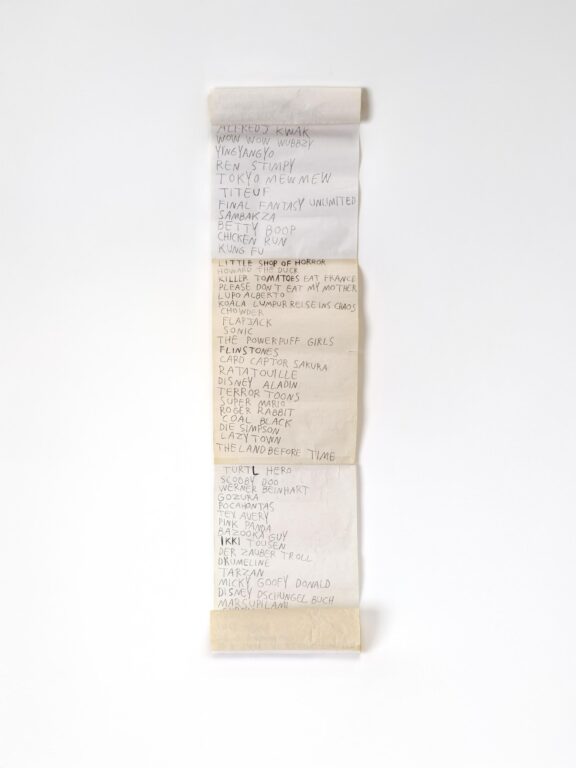 ALFRED J KWAK
WOW WOW WUBBZY
YINGYANGYO
REN STIMPY
TOKYO MEWMEW
TITEUF
FINAL FANTASY UNLIMITED
SAMBAKZA
BETTY BOOP
CHICKEN RUN
KUNG FU
LITTLE SHOP OF HORROR
HOWARD THE DUCK
KILLER TOMATOES EAT FRANCE
PLEASE DON'T EAT MY MOTHER
LUPO ALBERTO
KOALA LUMPUR REISE INS CHAOS
CHOWDER
FLAPJACK
SONIC
THE POWERPUFF GIRLS
FLINSTONES
CARD CAPTOR SAKURA
RATATOUILLE
DISNEY ALADIN
TERROR TOONS
SUPER MARIO
ROGER RABBIT
COAL BLACK
DIE SIMPSON
LAZYTOWN
THE LAND BEFORE TIME
TURTL HERO
SCOOBY DOO
WERNER BEINHART
GOZURA
POCAHONTAS
TEX AVERY
PINK PANDA
BAZOOKA GUY
IKKI TOUSEN
DER ZAUBER TROLL
DRUMELINE
TARZAN
MICKY GOOFY DONALD
DISNEY DSCHUNGEL BUCH
MARSUPILAMI